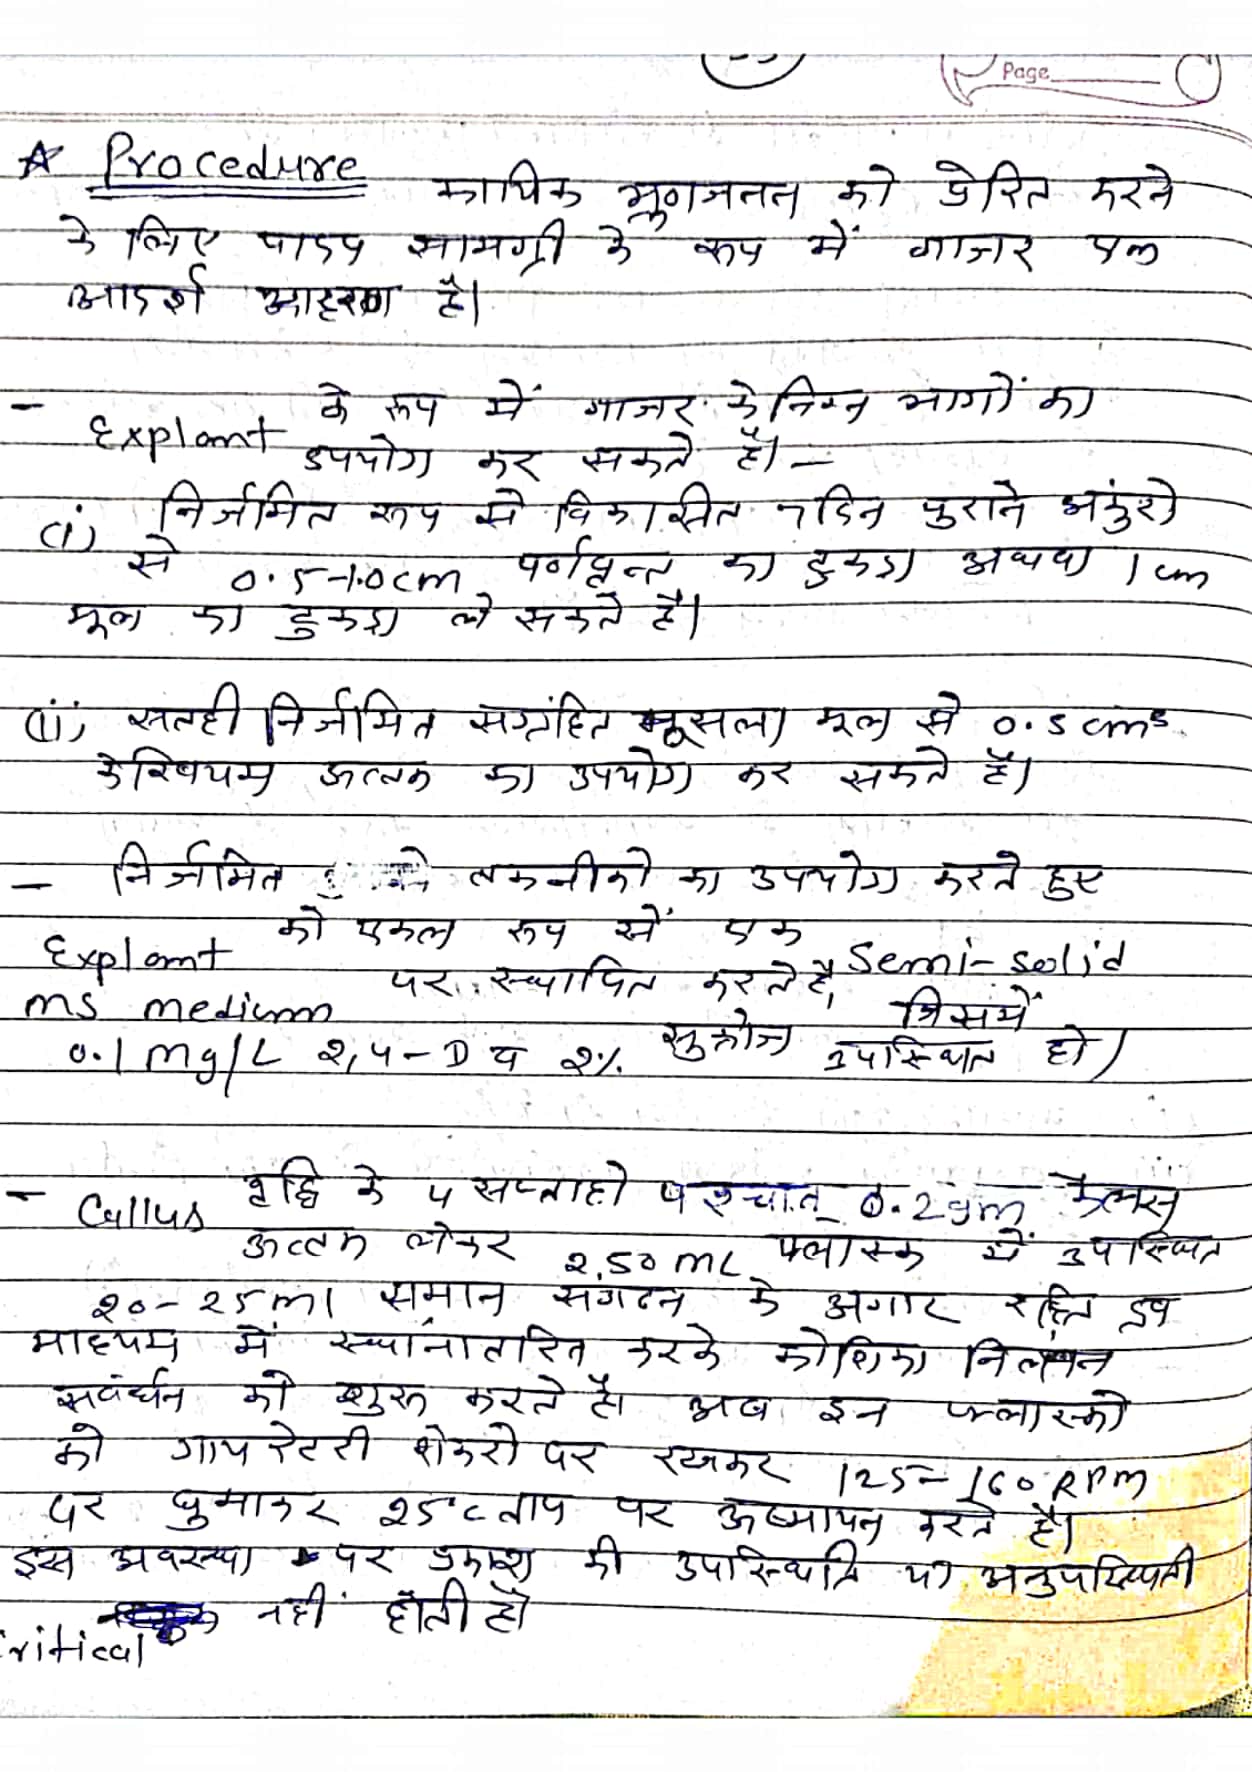 Page
☆ Procedure कायिक भ्रूणजनन को प्रेरित करने
के लिए पादप सामग्री के रूप में गाजर एक
आदर्श आहरण है।
- Explant के रूप में गाजर के निम्न भागों का
उपयोग कर सकते है। -
(i) निर्जमित रूप से विकासित 7 दिन पुराने अंकुरो
से 0.5-1.0cm पर्णवृन्त का टुकडा अथवा 1 cm
मूल का टुकडा ले सकते है।
(ii) सतही निर्जमित संग्रहित मूसला मूल से 0.5 cms
केम्बियम ऊत्तक का उपयोग कर सकते है।
- निर्जमित तकनीको का उपयोग करते हुए
Explant को एकल रूप से एक Semi-solid
MS medium पर स्थापित करते है, जिसमें
0.1 mg/L 2,4-D व 2% सुक्रोज उपास्थित हो।
- Callus वृद्धि के 4 सप्ताहो पश्चात् 0.2gm कैलस
ऊत्तक लेकर 2,50 mL फ्लास्क में उपास्थित
20-25ml समान संगठन के अगार रहित द्रव
माध्यम में स्थानांतरित करके कोशिका निलंबन
सवंर्धन को शुरू करते है। अब इन फ्लास्को
को गायरेटरी शेकरो पर रखकर 125-160 RPM
पर घुमाकर 25°C ताप पर ऊष्मायन करते है।
इस अवस्था पर प्रकाश की उपास्थिति या अनुपस्थिती
critical नही होती है।